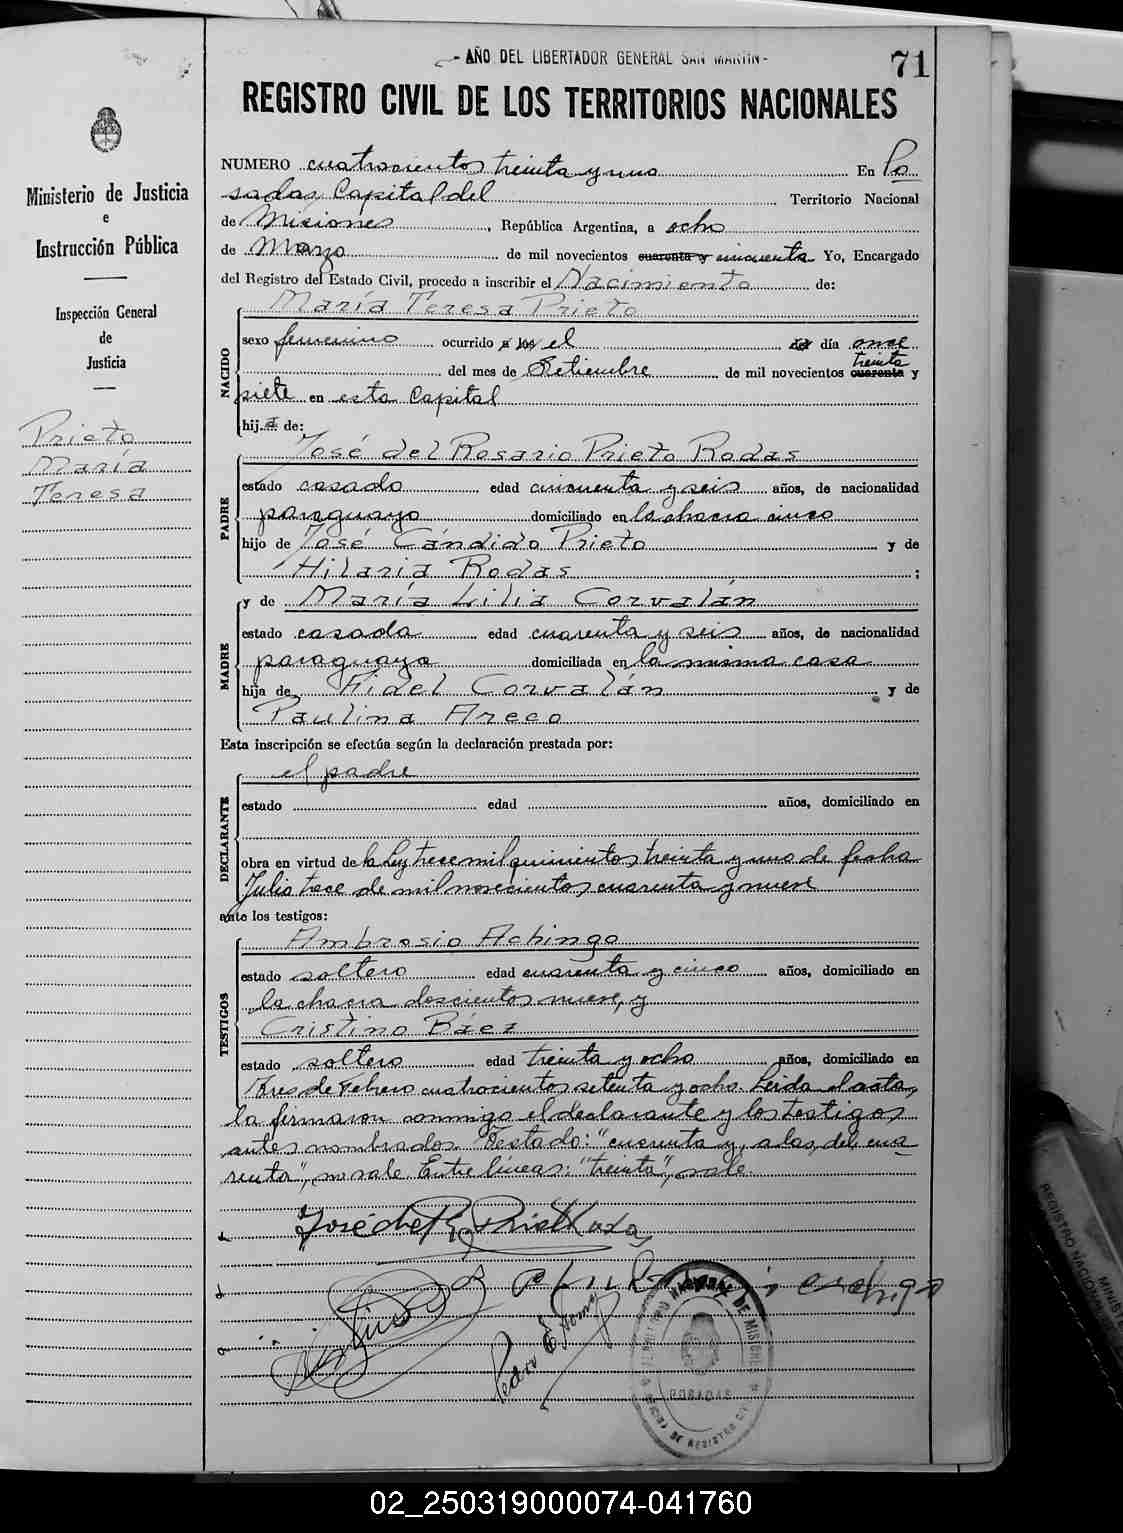 - AÑO DEL LIBERTADOR GENERAL SAN MARTIN -
71
REGISTRO CIVIL DE LOS TERRITORIOS NACIONALES
Ministerio de Justicia
e
Instrucción Pública
Inspección General
de
Justicia
Prieto
María
Teresa
NUMERO cuatrocientos treinta y uno En Po
sadas, Capital del Territorio Nacional
de Misiones, República Argentina, a ocho
de Marzo de mil novecientos cuarenta y cincuenta Yo, Encargado
del Registro del Estado Civil, procedo a inscribir el Nacimiento de:
María Teresa Prieto
NACIDO
sexo femenino ocurrido a las el día once
treinta
del mes de Setiembre de mil novecientos cuarenta y
siete en esta Capital
hija de:
José del Rosario Prieto Rodas
PADRE
estado casado edad cincuenta y seis años, de nacionalidad
paraguayo domiciliado en la chacra cinco
hijo de José Cándido Prieto y de
Hilaria Rodas ;
y de María Lilia Corvalán
MADRE
estado casada edad cuarenta y seis años, de nacionalidad
paraguaya domiciliada en la misma casa
hija de Fidel Corvalán y de
Paulina Areco
Esta inscripción se efectúa según la declaración prestada por:
el padre
DECLARANTE
estado edad años, domiciliado en
obra en virtud de la Ley trece mil quinientos treinta y uno de fecha
Julio trece de mil novecientos cuarenta y nueve
ante los testigos:
Ambrosio Achingo
TESTIGOS
estado soltero edad cuarenta y cinco años, domiciliado en
la chacra doscientos nueve, y
Cristino Báez
estado soltero edad treinta y ocho años, domiciliado en
Tres de Febrero cuatrocientos setenta y ocho Leida el acta,
la firmaron conmigo el declarante y los testigos
antes nombrados. Testado: "cuarenta y, a las, del, cua
renta", no vale. Entre líneas: "treinta", vale
José del R. Prieto Rodas
Pedro E.
POSADAS
REGISTRO NACIONAL
MINISTE
02_250319000074-041760